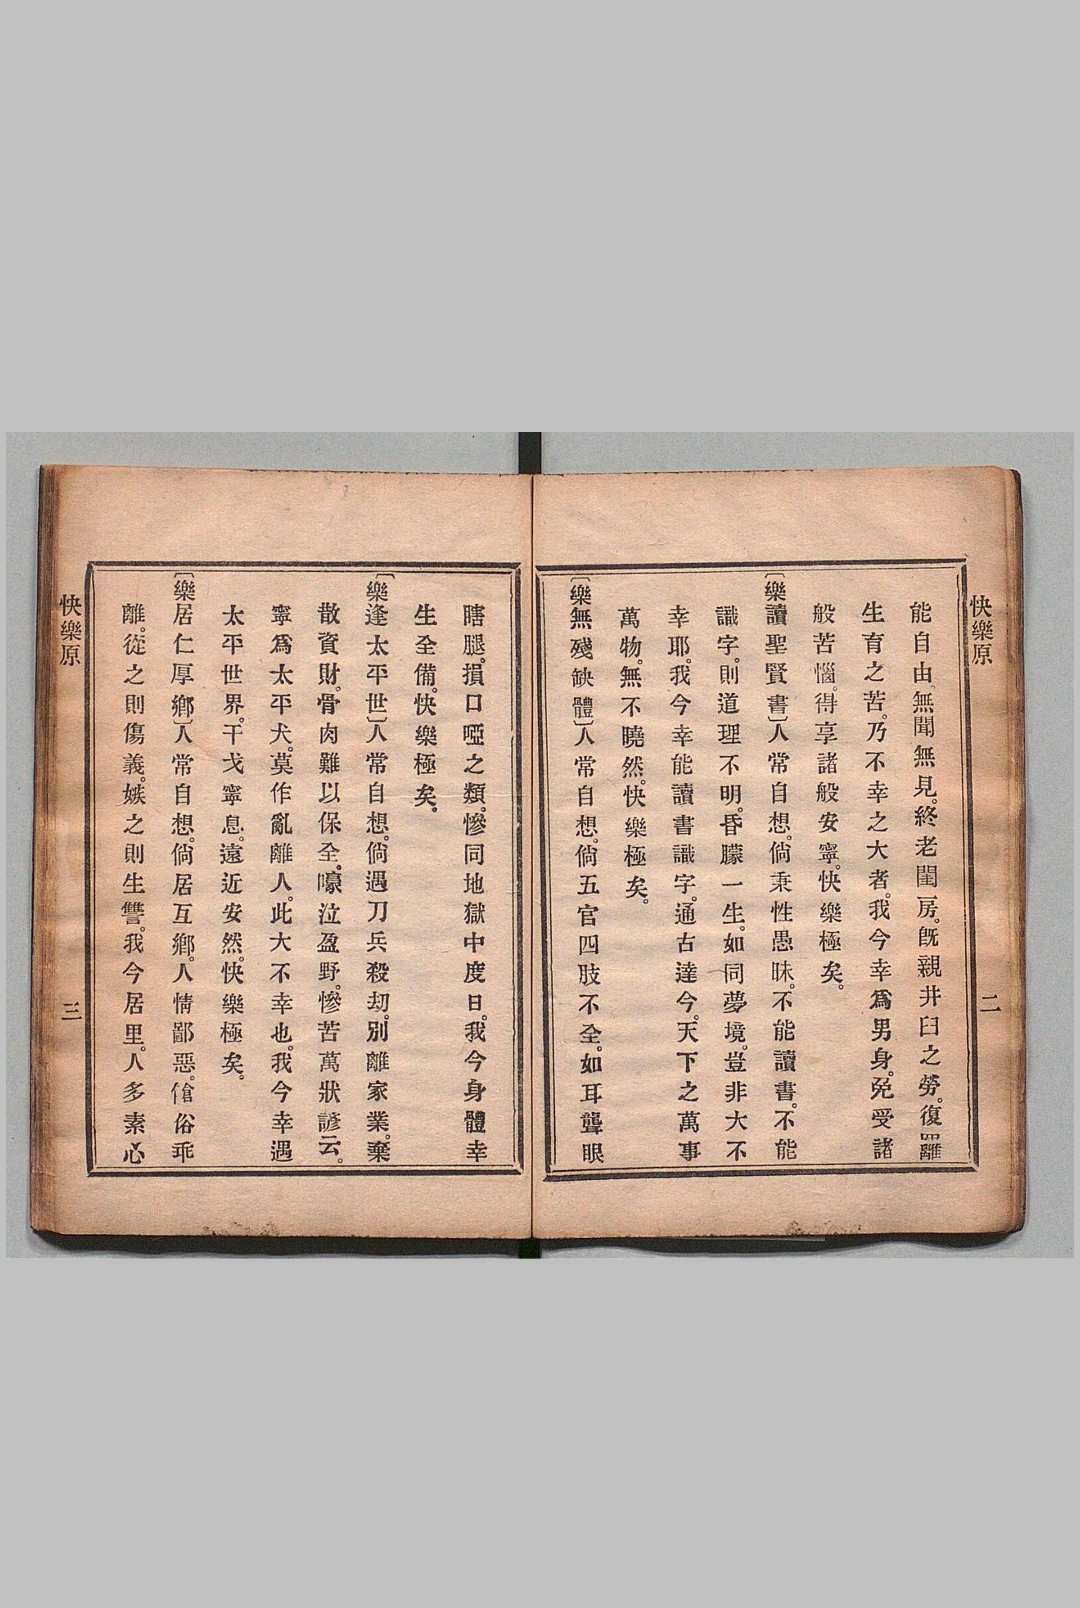 快樂原
二
能自由、無聞無見。終老閨房。旣親井臼之勞。復罹
生育之苦。乃不幸之大者。我今幸爲男身。免受諸
般苦惱。得享諸般安寧。快樂極矣。
〔樂讀聖賢書〕人常自想。倘秉性愚昧。不能讀書。不能
識字。則道理不明。昏朦一生。如同夢境。豈非大不
幸耶。我今幸能讀書識字。通古達今。天下之萬事
萬物。無不曉然。快樂極矣。
〔樂無殘缺體〕人常自想。倘五官四肢不全。如耳聾眼
瞎腿。損口啞之類。慘同地獄中度日。我今身體幸
生全備。快樂極矣。
〔樂逢太平世〕人常自想。倘遇刀兵殺刼。別離家業。棄
散資財。骨肉難以保全。嚎泣盈野。慘苦萬狀諺云。
寧爲太平犬。莫作亂離人。此大不幸也。我今幸遇
太平世界。干戈寧息。遠近安然。快樂極矣。
〔樂居仁厚鄉〕人常自想。倘居互鄉。人情鄙惡。傖俗乖
離。從之則傷義。嫉之則生讐。我今居里。人多素心
快樂原
三